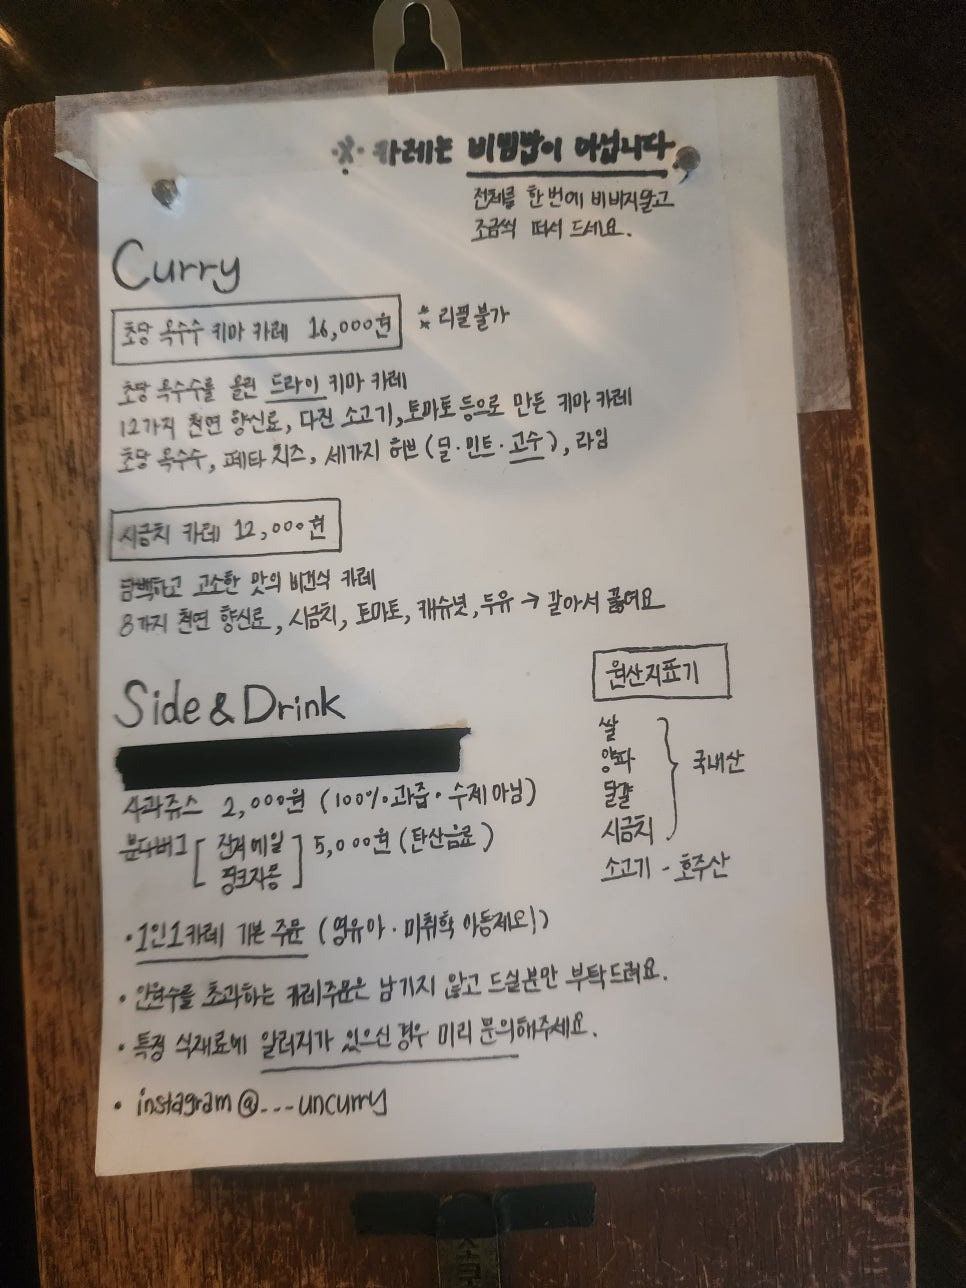 ※ 카레는 비빔밥이 아닙니다.
전체를 한 번에 비비지말고
조금씩 떠서 드세요.
Curry
초당 옥수수 키마 카레 16,000원 ※ 리필 불가
초당 옥수수를 올린 드라이 키마 카레
12가지 천연 향신료, 다진 소고기, 토마토 등으로 만든 키마 카레
초당 옥수수, 페타 치즈, 세가지 허브 (딜·민트·고수), 라임
시금치 카레 12,000원
담백하고 고소한 맛의 비건식 카레
8가지 천연 향신료, 시금치, 토마토, 캐슈넛, 두유 → 갈아서 끓여요
Side & Drink
사과쥬스 2,000원 (100% 과즙·수제 아님)
분다버그 [진저에일 핑크자몽] 5,000원 (탄산음료)
원산지표기
쌀
양파
달걀
시금치
} 국내산
소고기 - 호주산
· 1인 1카레 기본 주문 (영유아·미취학 아동제외)
· 인원수를 초과하는 카레주문은 남기지 않고 드실분만 부탁드려요.
· 특정 식재료에 알러지가 있으신 경우 미리 문의해주세요.
· instagram @---uncurry